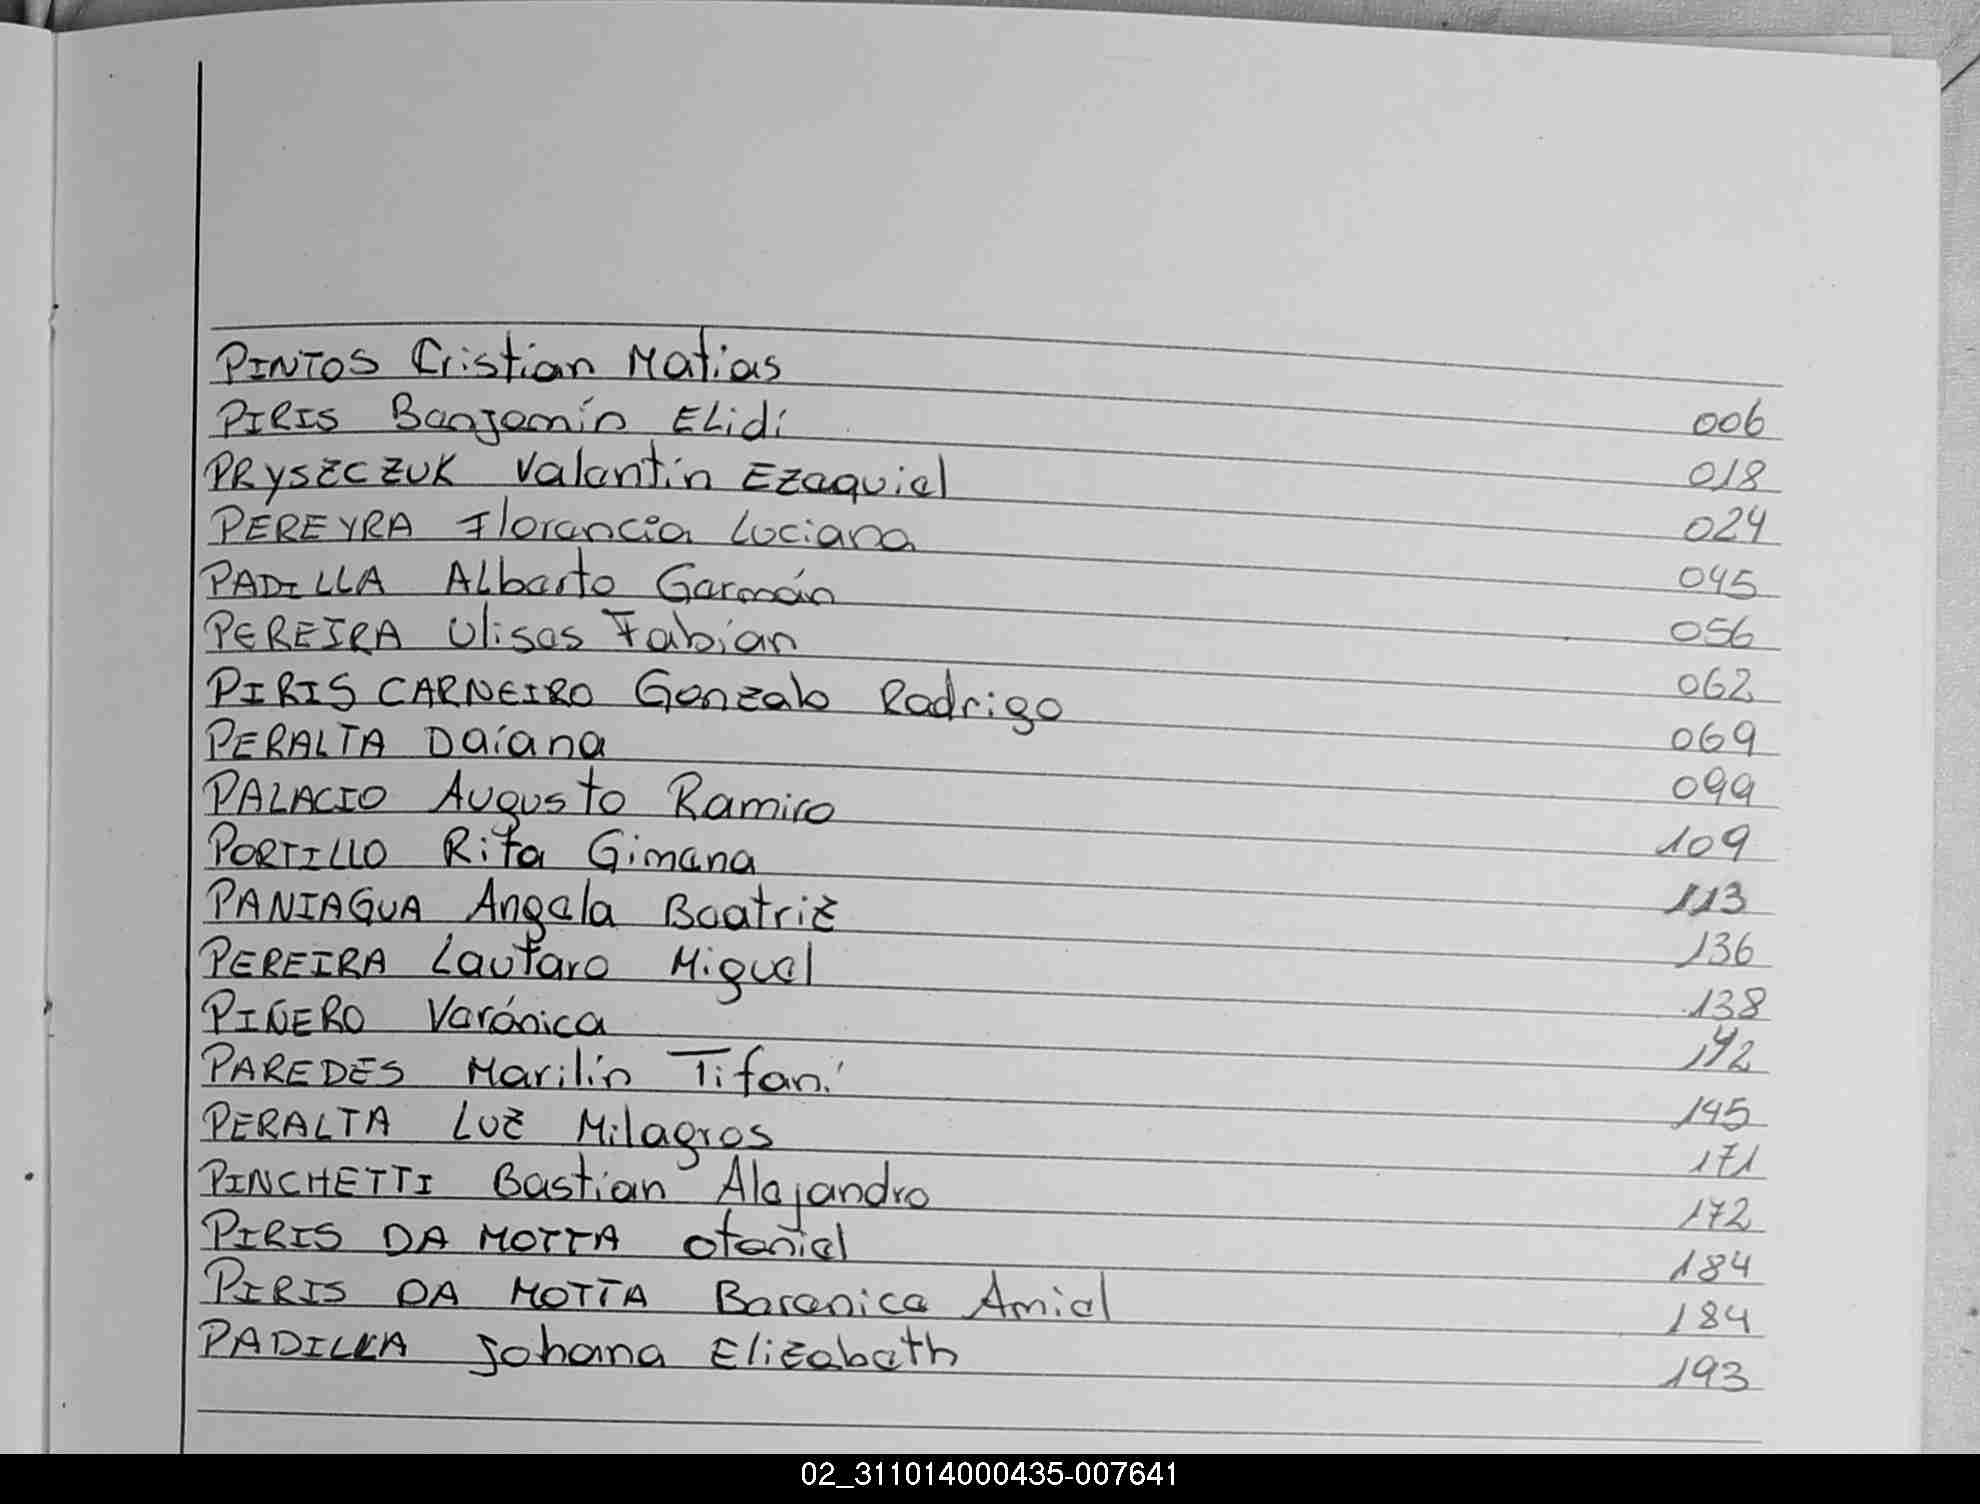 PINTOS Cristian Matias 006
PIRIS Benjamín Elidi 018
PRYSZCZUK Valentín Ezequiel 024
PEREYRA Florencia Luciana 045
PADILLA Alberto Germán 056
PEREIRA Ulises Fabián 062
PIRIS CARNEIRO Gonzalo Rodrigo 069
PERALTA Daiana 099
PALACIO Augusto Ramiro 109
PORTILLO Rita Gimena 113
PANIAGUA Angela Beatriz 136
PEREIRA Lautaro Miguel 138
PIÑERO Verónica 142
PAREDES Marilin Tifani 145
PERALTA Luz Milagros 171
PINCHETTI Bastian Alejandro 172
PIRIS DA MOTTA Otoniel 184
PIRIS DA MOTTA Berenice Amiel 184
PADILLA Johana Elizabeth 193
02_311014000435-007641